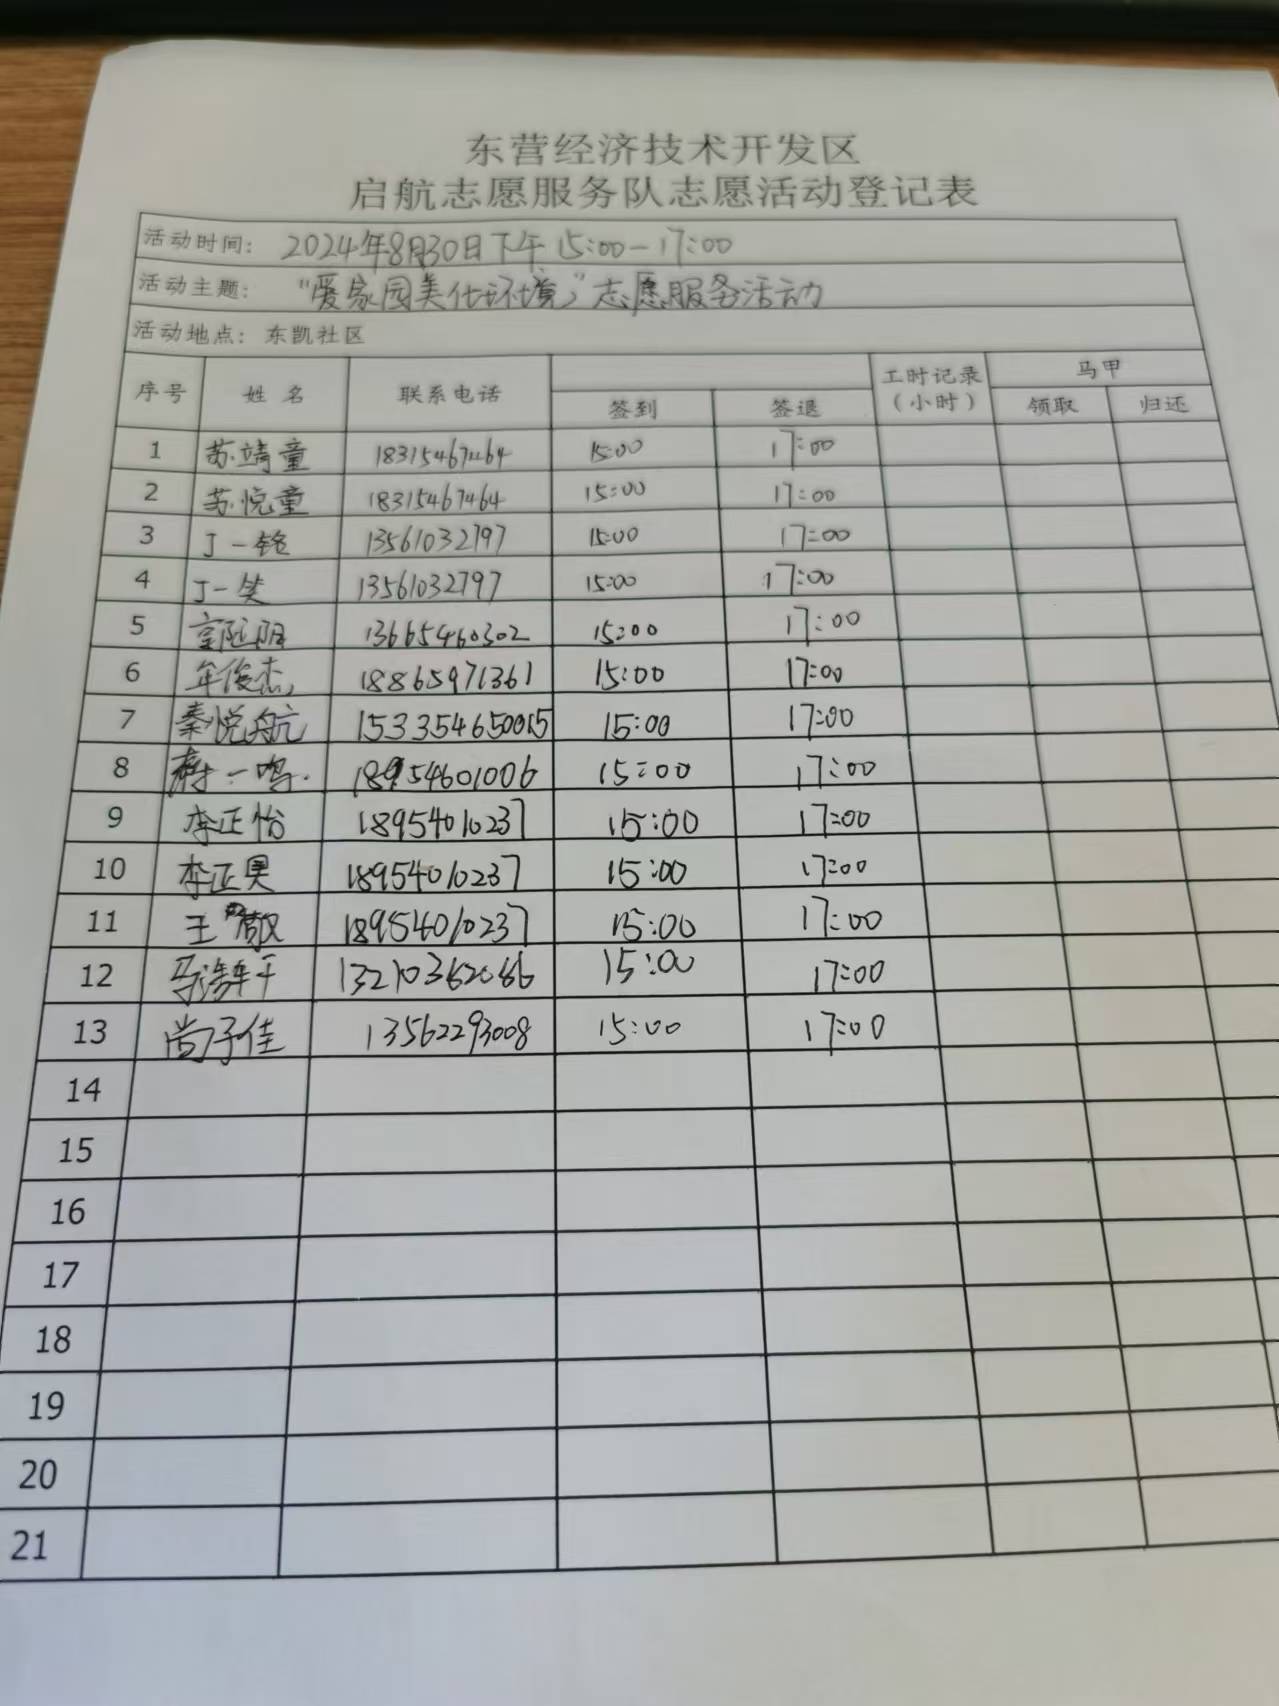 东营经济技术开发区
启航志愿服务队志愿活动登记表
活动时间: 2024年8月30日下午 15:00-17:00
活动主题: "爱家园美化环境"志愿服务活动
活动地点: 东凯社区
序号 姓名 联系电话 签到 签退 工时记录(小时) 马甲 领取 归还
1 苏靖童 18315467464 15:00 17:00
2 苏悦童 18315467464 15:00 17:00
3 丁一铭 13561032797 15:00 17:00
4 丁一笑 13561032797 15:00 17:00
5 13665460302 15:00 17:00
6 年俊杰 18865971361 15:00 17:00
7 秦悦航 15:00 17:00
8 一鸣 18954601006 15:00 17:00
9 李正怡 18954010237 15:00 17:00
10 李正昊 18954010237 15:00 17:00
11 王 敬 18954010237 15:00 17:00
12 马浩 15:00 17:00
13 尚子佳 13562293008 15:00 17:00
14
15
16
17
18
19
20
21